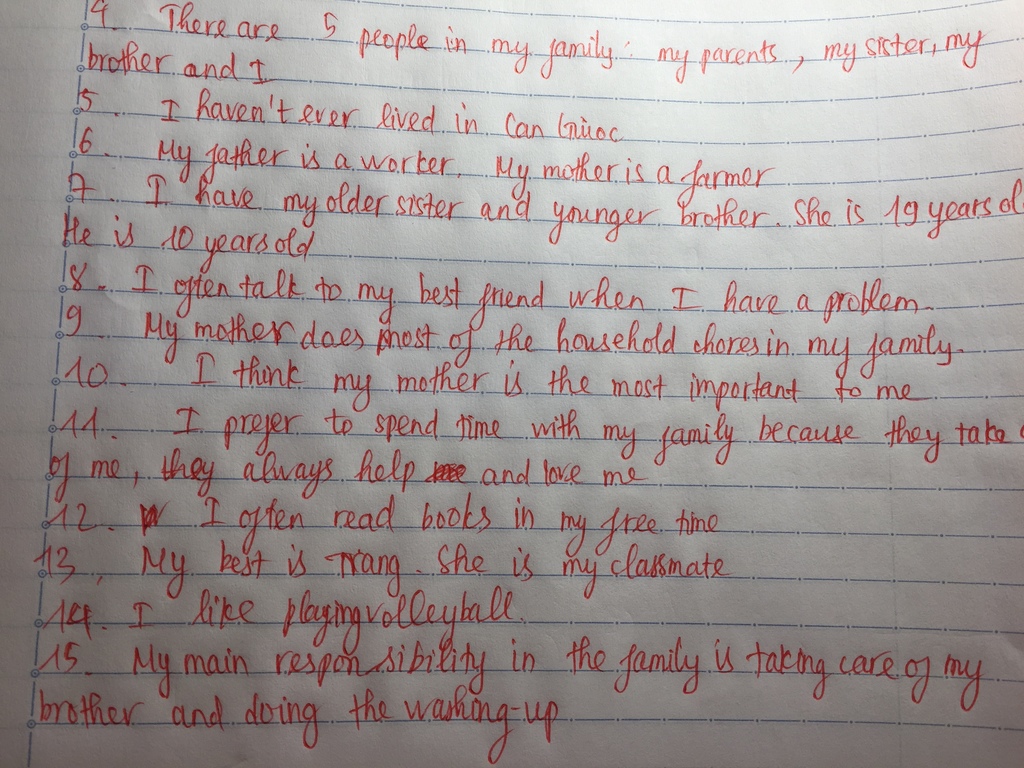 4. There are 5 people in my family: my parents, my sister, my
brother and I
5. I haven't ever lived in Can
6. My father is a worker. My mother is a farmer
7. I have my older sister and younger brother. She is 19 years
He is 10 years old
8. I often talk to my best friend when I have a problem.
9 My mother does most of the household chores in my family.
10. I think my mother is the most important to me
11. I prefer to spend time with my family because they take
of me, they always help and love me
12. I often read books in my free time
13, My best is Trang. She is my classmate
14. I like playing volleyball.
15. My main responsibility in the family is taking care of my
brother and doing the washing-up